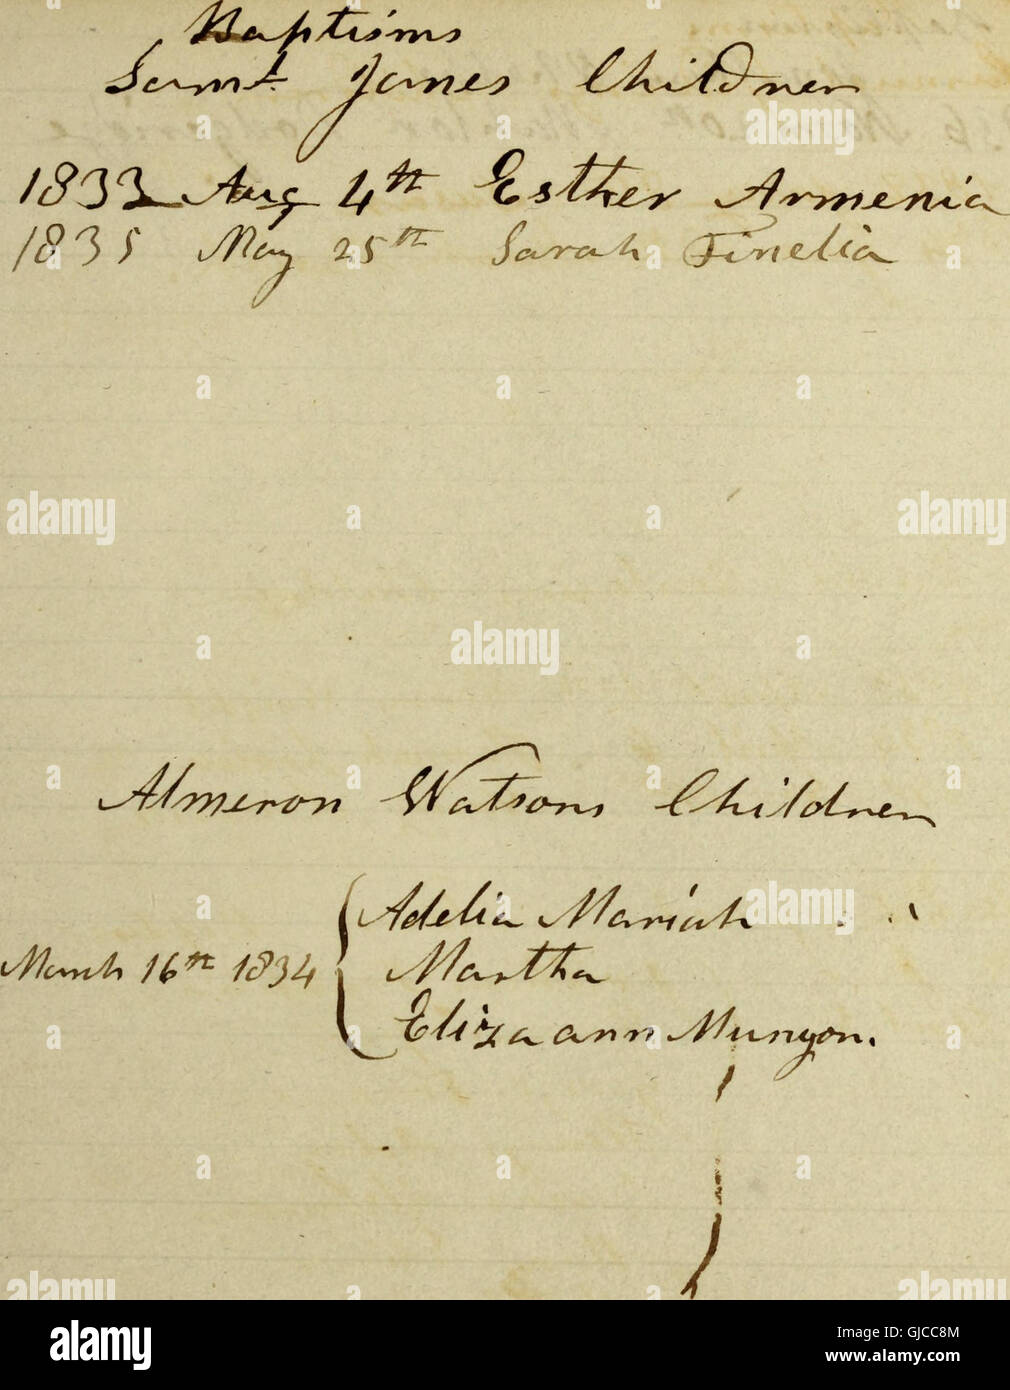 Baptisms
Saml. Janes Children
1833 Aug 4th Esther Armenia
1835 May 25th Sarah Finelia
Almeron Watsons Children
Adelia Mariah
March 16th 1834
Martha
Elizaann Munyon.
alamy
Image ID: GJCC8M
www.alamy.com